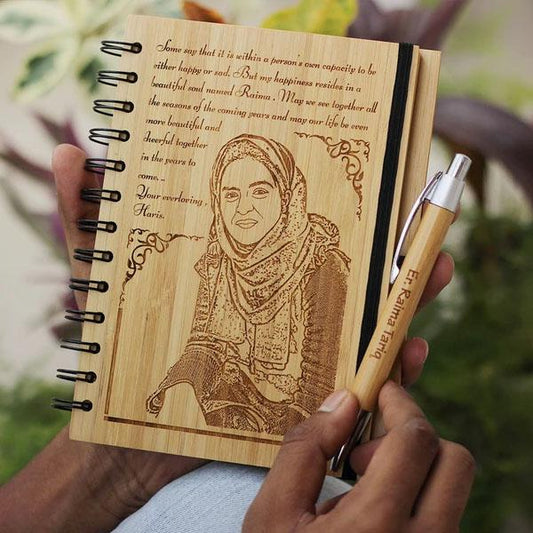 Some say that it is within a person's own capacity to be
either happy or sad. But my happiness resides in a
beautiful soul named Raima . May we see together all
the seasons of the coming years and may our life be even
more beautiful and
cheerful together
in the years to
come. ..
Your everloving ,
Haris.
Er. Raima Tariq